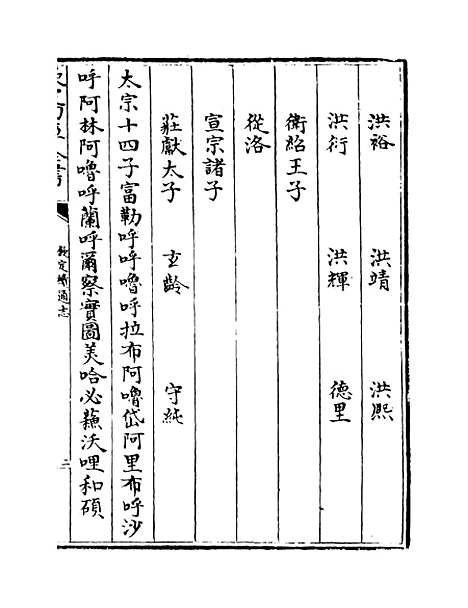 洪裕　洪靖　洪熙
洪衍　洪輝　德里
衛紹王子
從洛
宣宗諸子
莊獻太子　玄齡　守純
太宗十四子富勒呼呼嚕呼拉布阿嚕岱阿里布呼沙
呼阿林阿嚕呼蘭呼爾察實圖美哈必蘇沃哩和碩
欽定續通志